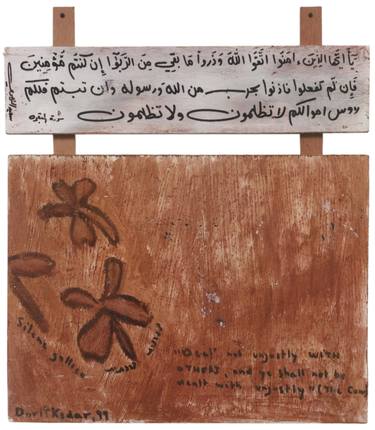 يٰأيها الذين ءامنوا اتقوا الله وذروا ما بقي من الربوٰا إن كنتم مؤمنين
فإن لم تفعلوا فأذنوا بحرب من الله ورسوله وان تبتم فلكم
رءوس اموالكم لا تظلمون ولا تظلمون
سورة البقرة
Silent
"Deal" not unjustly with
others, and ye shall not be
dealt with unjustly" (The Cow)
Dorit Kedar, 99